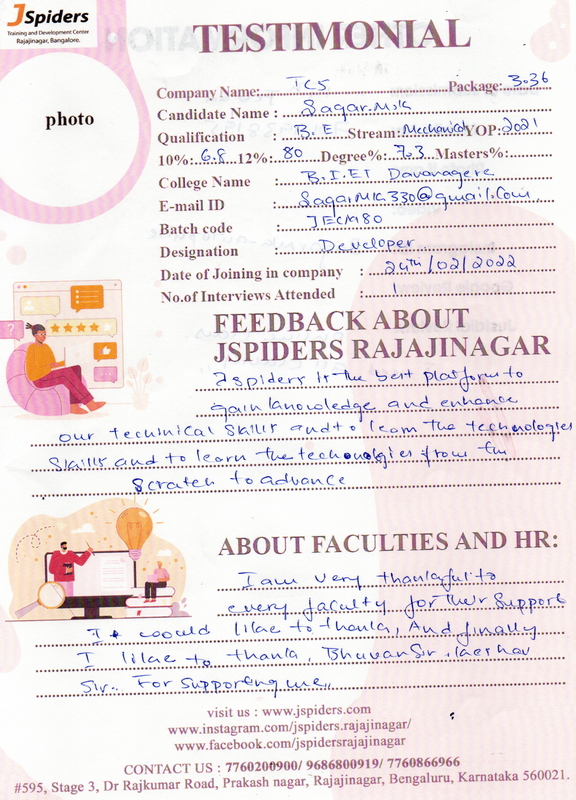 JSpiders
Training and Development Center
Rajajinagar, Bangalore.
TESTIMONIAL
photo
Company Name: TCS Package: 3.36
Candidate Name : Sagar.M.K
Qualification : B.E Stream: Mechanical YOP: 2021
10%: 6.8 12%: 80 Degree%: 7.3 Masters%:
College Name : B.I.ET Davanagere
E-mail ID : SagarMK330@gmail.Com
Batch code : JECM80
Designation : Developer
Date of Joining in company : 24th/02/2022
No.of Interviews Attended : 1
FEEDBACK ABOUT
JSPIDERS RAJAJINAGAR
Jspiders is the best platform to
gain knowledge and enhance
our technical skills and to learn the technologies
skills and to learn the techonologies from the
scratch to advance
ABOUT FACULTIES AND HR:
I am very thankful to
every faculty for their support
I would like to thank, And finally
I like to thank, Bhuvan Sir, keshav
Sir.. For supporting me,,
visit us : www.jspiders.com
www.instagram.com/jspiders.rajajinagar/
www.facebook.com/jspidersrajajinagar
CONTACT US : 7760200900/ 9686800919/ 7760866966
#595, Stage 3, Dr Rajkumar Road, Prakash nagar, Rajajinagar, Bengaluru, Karnataka 560021.